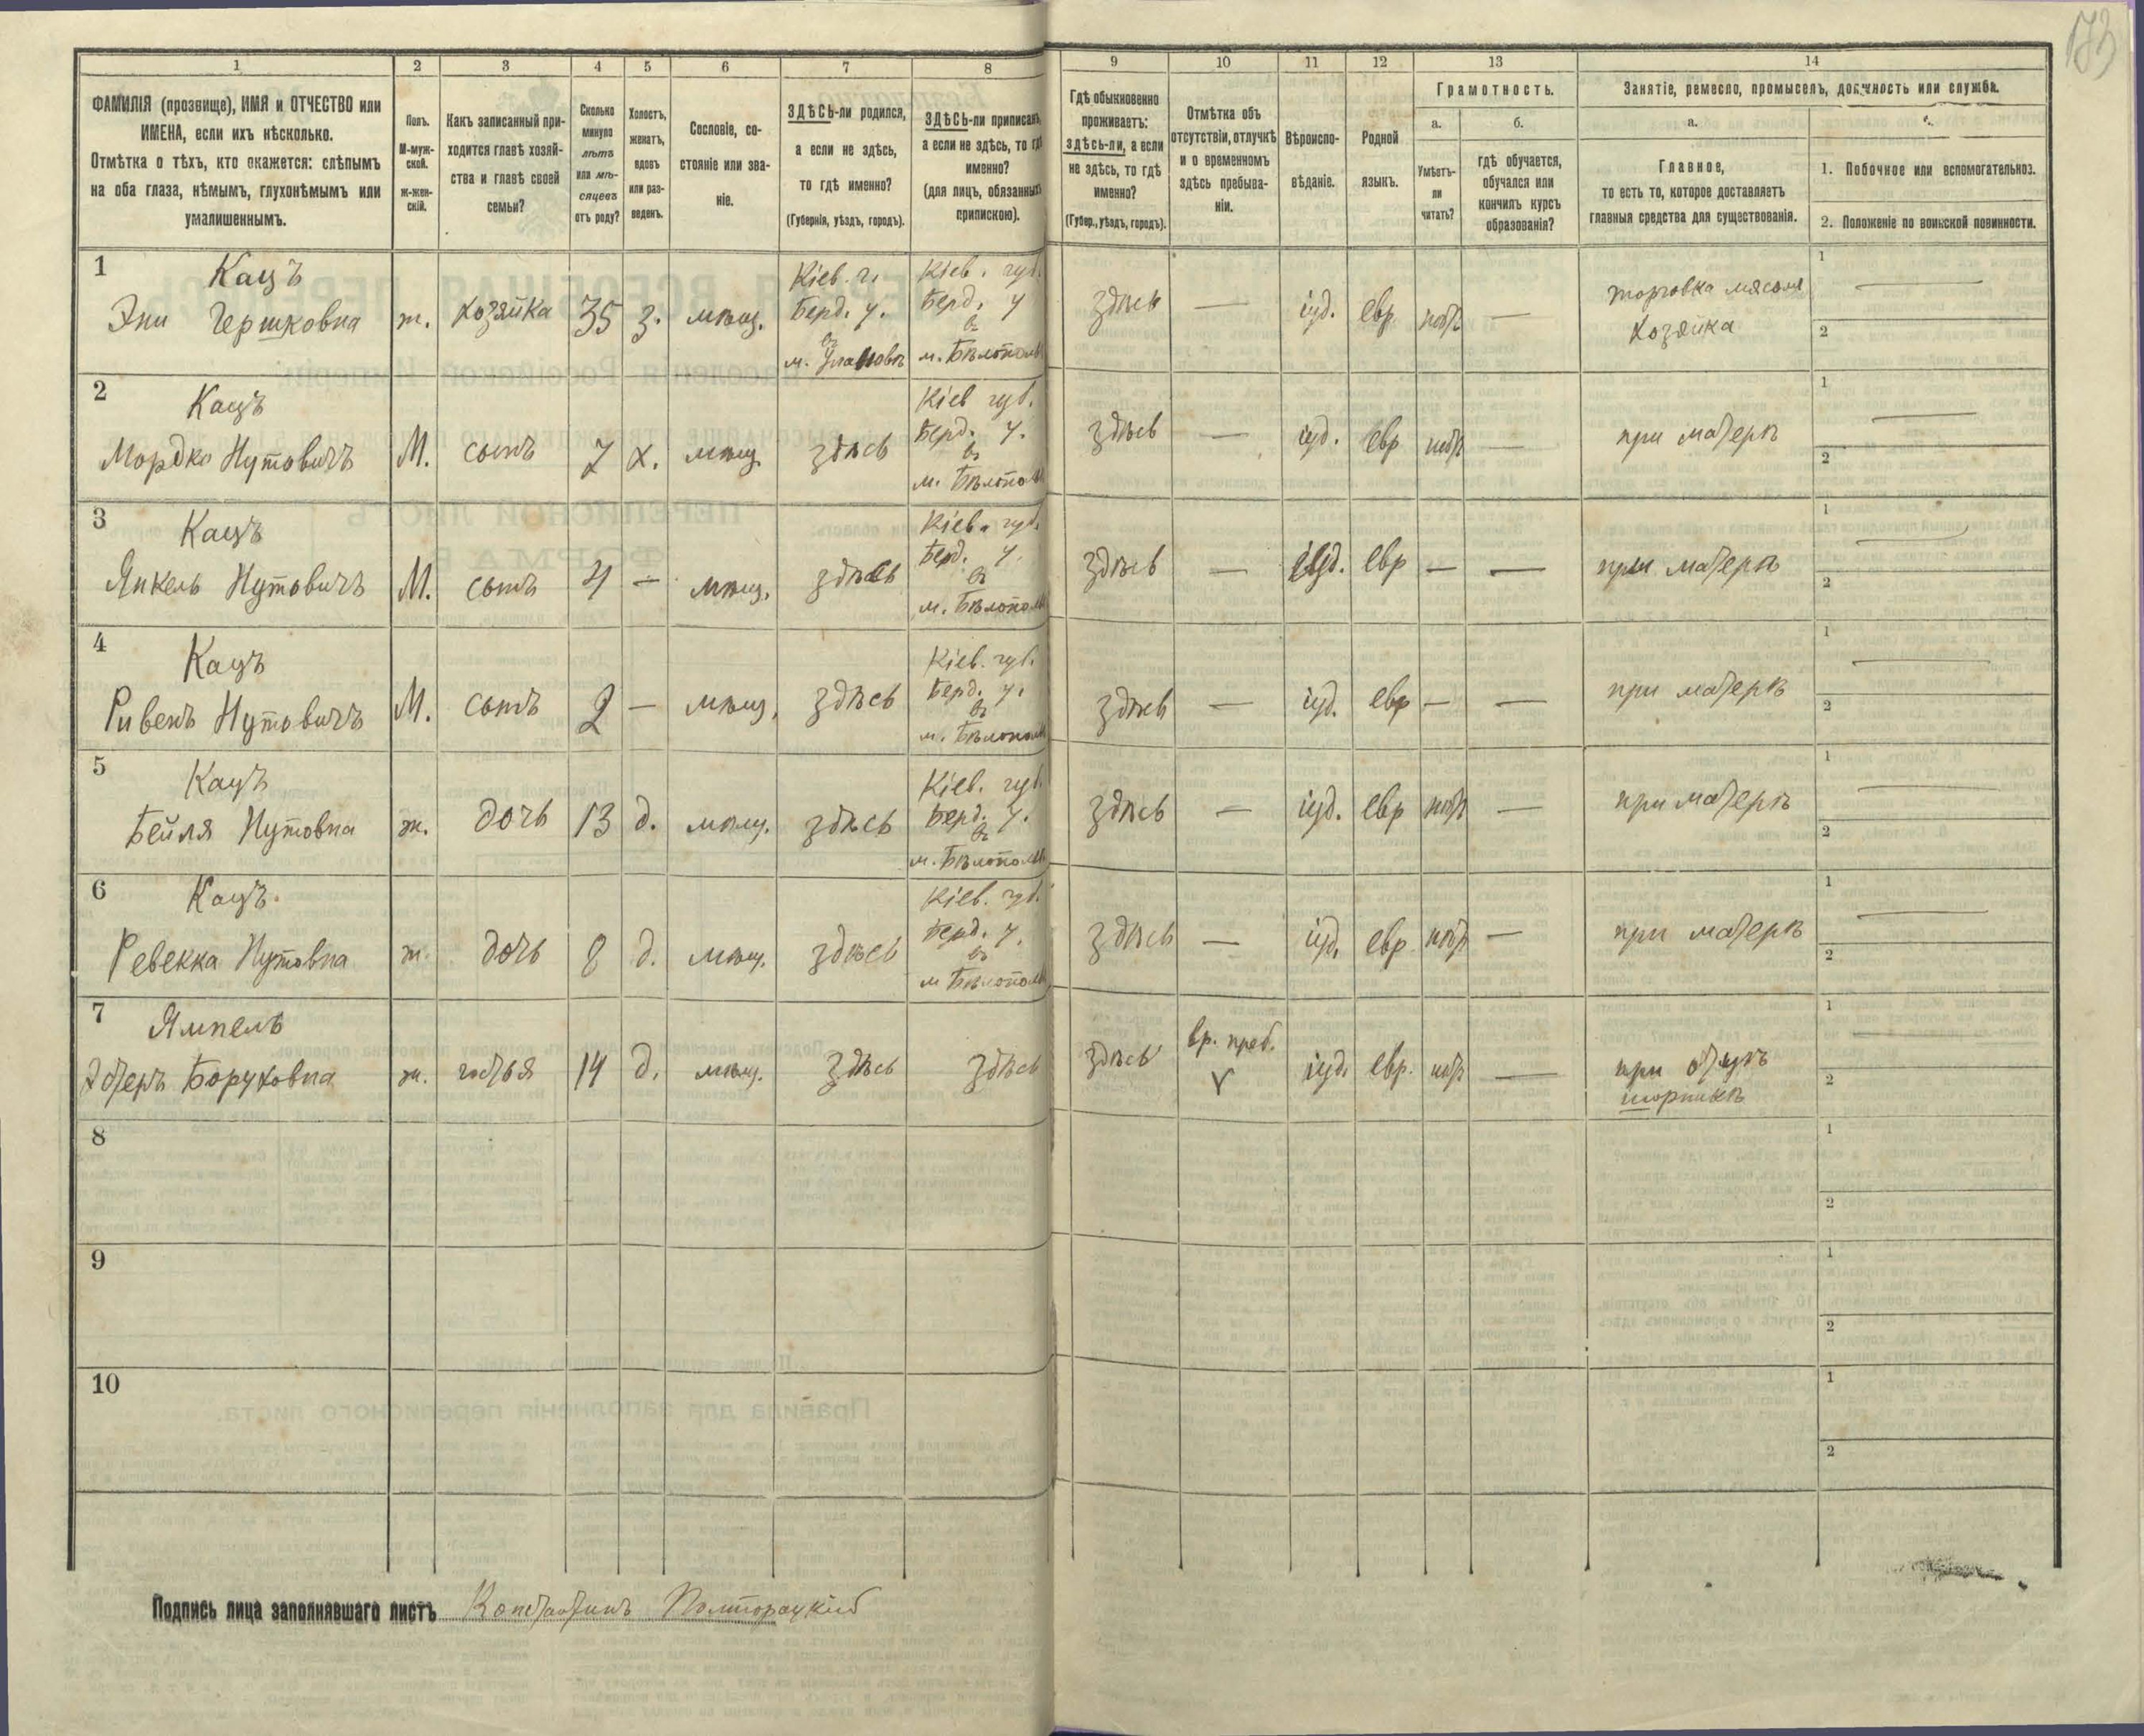 173
1 2 3 4 5 6 7 8 9 10 11 12 13 14
ФАМИЛІЯ (прозвище), ИМЯ и ОТЧЕСТВО или
ИМЕНА, если ихъ нѣсколько.
Отмѣтка о тѣхъ, кто окажется: слѣпымъ
на оба глаза, нѣмымъ, глухонѣмымъ или
умалишеннымъ.
Полъ.
М-муж-
ской.
ж-жен-
скій.
Какъ записанный при-
ходится главѣ хозяй-
ства и главѣ своей
семьи?
Сколько
минуло
лѣтъ
или мѣ-
сяцевъ
отъ роду?
Холостъ,
женатъ,
вдовъ
или раз-
веденъ.
Сословіе, со-
стояніе или зва-
ніе.
ЗДѢСЬ-ли родился,
а если не здѣсь,
то гдѣ именно?
(Губернія, уѣздъ, городъ).
ЗДѢСЬ-ли приписанъ,
а если не здѣсь, то гдѣ
именно?
(для лицъ, обязанныхъ
припискою).
Гдѣ обыкновенно
проживаетъ:
здѣсь-ли, а если
не здѣсь, то гдѣ
именно?
(Губер., уѣздъ, городъ).
Отмѣтка объ
отсутствіи, отлучкѣ
и о временномъ
здѣсь пребыва-
ніи.
Вѣроиспо-
вѣданіе.
Родной
языкъ.
Грамотность.
а.
Умѣетъ-
ли
читать?
б.
гдѣ обучается,
обучался или
кончилъ курсъ
образованія?
Занятіе, ремесло, промыселъ, должность или служба.
а.
Главное,
то есть то, которое доставляетъ
главныя средства для существованія.
1. Побочное или вспомогательное.
2. Положеніе по воинской повинности.
1 Кацъ
Эни Гершковна ж. хозяйка 35 з. мѣщ.
Кіев. г.
Берд. у.
въ
м. Улановѣ
Кіев. губ.
Берд. у
въ
м. Бѣлополь
здѣсь — іуд. евр. нѣтъ —
торговка мясомъ
хозяйка
1 —
2
2 Кацъ
Мордко Нутовичъ М. сынъ 7 х. мѣщ. здѣсь
Кіев губ.
Берд. у.
въ
м. Бѣлопол
здѣсь — іуд. евр нѣтъ — при матери
1 —
2
3 Кацъ
Янкель Нутовичъ М. сынъ 4 — мѣщ. здѣсь
Кіев. губ.
Берд. у.
въ
м. Бѣлопол
здѣсь — іуд. евр — — при матери
1 —
2
4 Кацъ
Ривенъ Нутовичъ М. сынъ 2 — мѣщ. здѣсь
Кіев. губ.
Берд. у.
въ
м. Бѣлопол
здѣсь — іуд. евр — — при матери
1 —
2
5 Кацъ
Бейля Нутовна ж. дочь 13 д. мѣщ. здѣсь
Кіев. губ
Берд. у.
въ
м. Бѣлопол
здѣсь — іуд. евр нѣтъ — при матери
1 —
2
6 Кацъ.
Ревекка Нутовна ж. дочь 8 д. мѣщ. здѣсь
Кіев. губ.
Берд. у.
въ
м Бѣлопол
здѣсь — іуд. евр. нѣтъ — при матери
1 —
2
7 Ямпель
Эстеръ Боруховна ж. гостья 14 д. мѣщ. здѣсь здѣсь
здѣсь вр. преб. іуд. евр. нѣтъ —
при отцѣ
шорникѣ
1 —
2
8
1
2
9
1
2
10
1
2
Подпись лица заполнявшаго листъ Константинъ Полторацкій